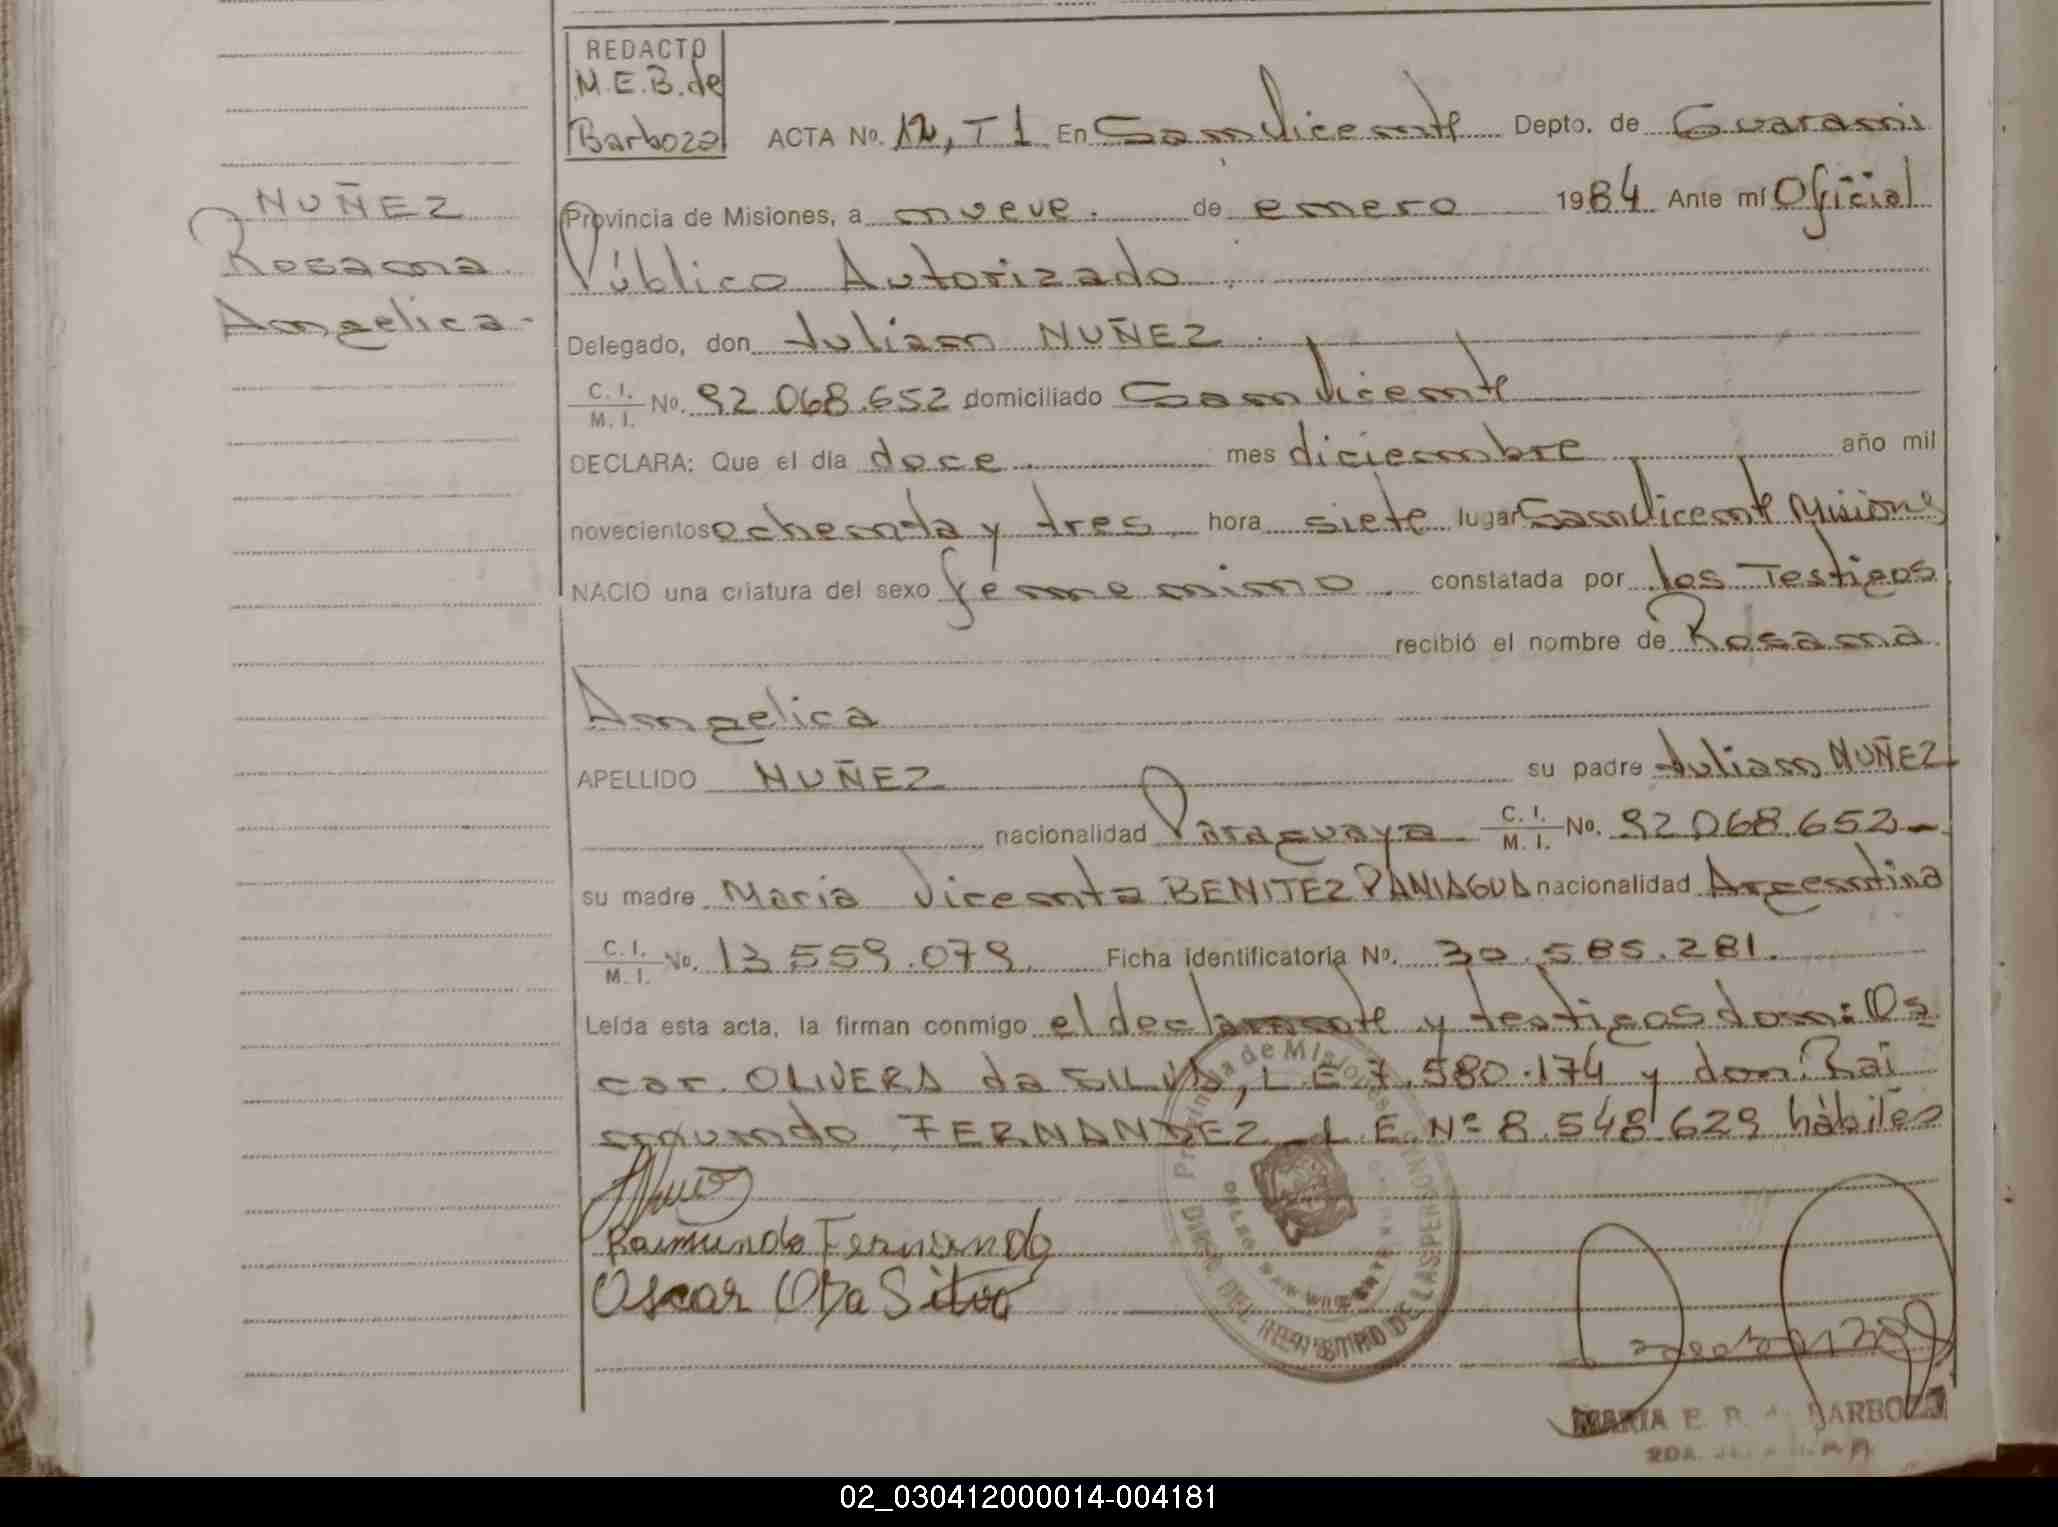 NUÑEZ
Rosana
Angelica-
REDACTO
M.E.B. de
Barboza
ACTA No. 12, T 1 En San Vicente Depto. de Guarani
Provincia de Misiones, a nueve. de enero 1984 Ante mí Oficial
Público Autorizado
Delegado, don Julian NUÑEZ
C. I. / M. I. No. 92.068.652 domiciliado San Vicente
DECLARA: Que el día doce mes diciembre año mil
novecientos ochenta y tres hora siete lugar San Vicente Misiones
NACIO una criatura del sexo femenino constatada por los Testigos
recibió el nombre de Rosana
Angelica
APELLIDO NUÑEZ su padre Julian NUÑEZ
nacionalidad Paraguaya C. I. / M. I. No. 92.068.652-
su madre Maria Vicenta BENITEZ PANIAGUA nacionalidad Argentina
C. I. / M. I. No. 13.559.079. Ficha identificatoria No. 30.585.281.
Leída esta acta, la firman conmigo el declarante y testigos don: Os
car OLIVERA da SILVA, L.E. 7.580.174 y don: Rai
mundo FERNANDEZ L.E. Nº 8.548.629 hábiles
Raimundo Fernando
Oscar O Da Silva
Provincia de Misiones
DIREC. DEL REGISTRO DE LAS PERSONAS
MARIA E. B. BARBOZA
02_030412000014-004181